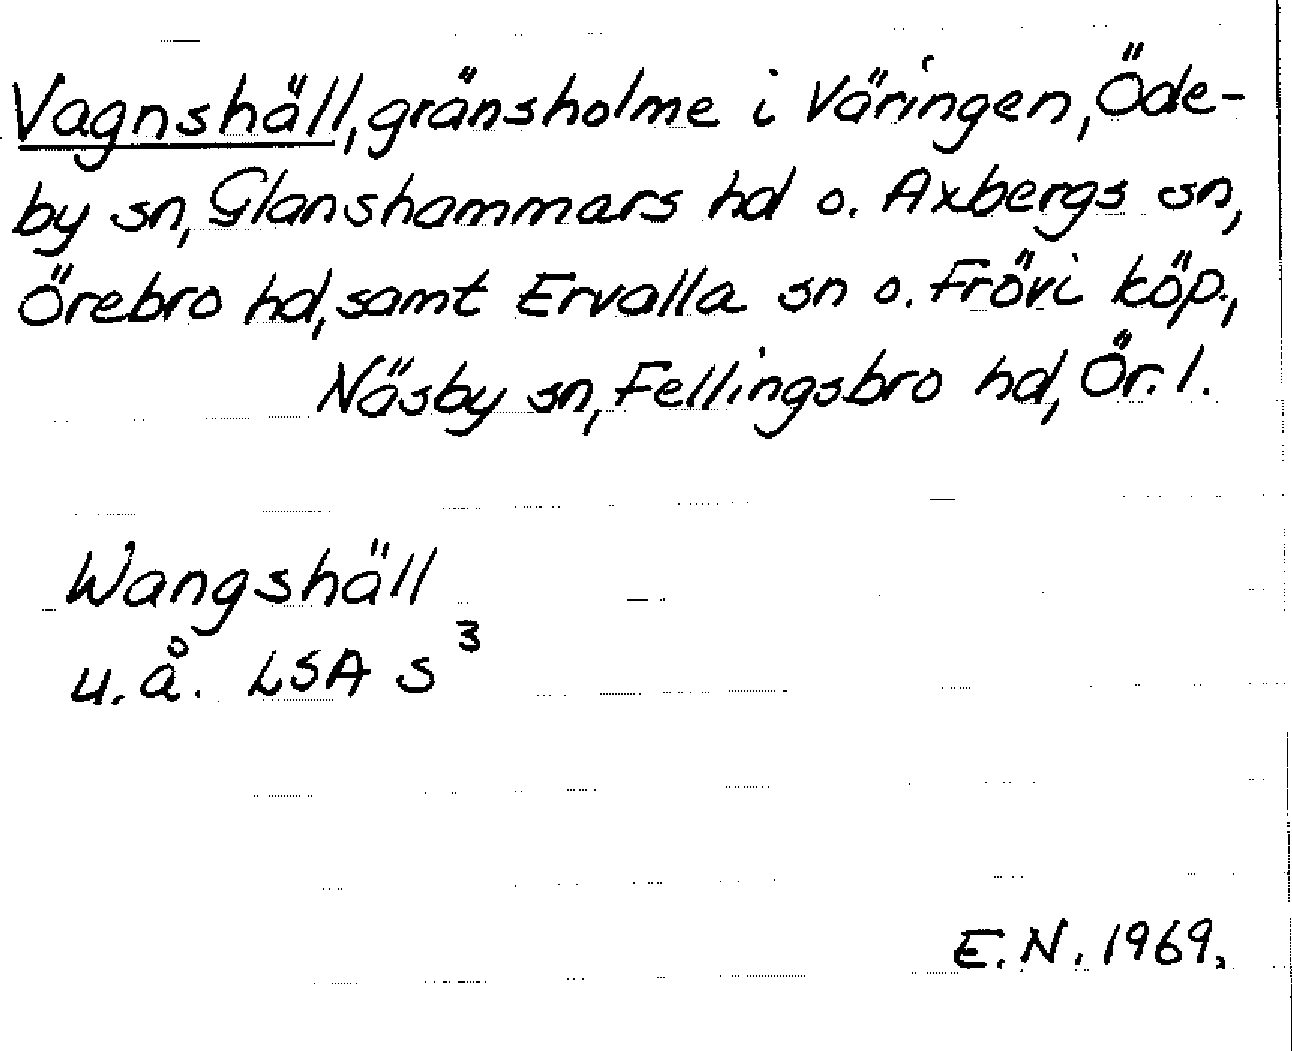 Vagnshäll, gränsholme i Väringen, Öde-
by sn, Glanshammars hd o. Axbergs sn,
Örebro hd, samt Ervalla sn o. Frövi köp.,
Näsby sn, Fellingsbro hd, Ör. l.
Wangshäll
u.å. LSA S³
E.N. 1969.